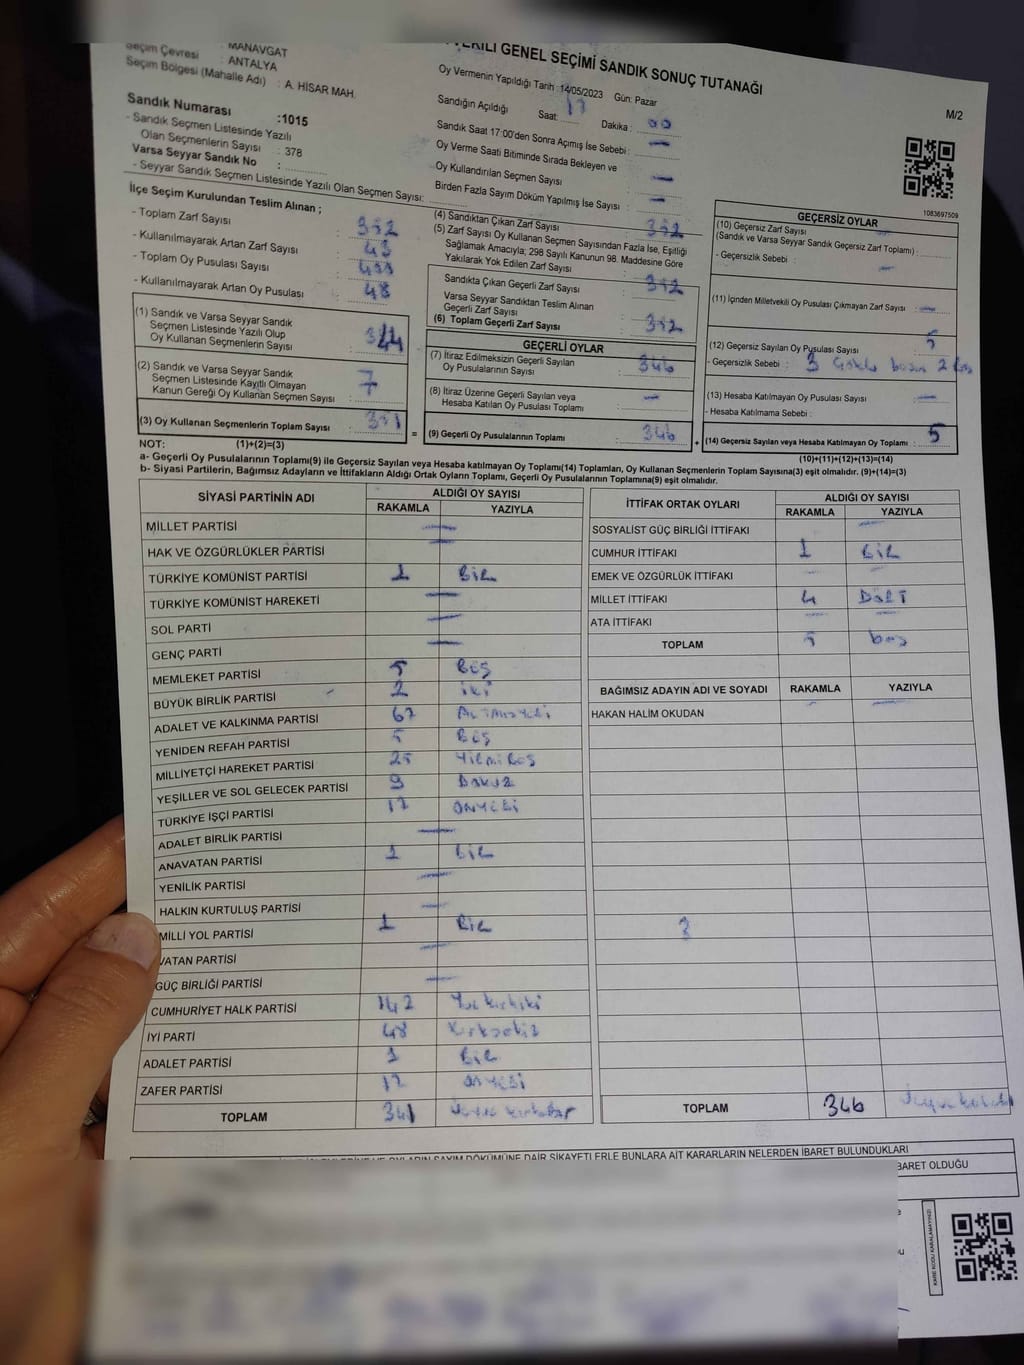 EKİLİ GENEL SEÇİMİ SANDIK SONUÇ TUTANAĞI
MANAVGAT
Seçim Çevresi : ANTALYA
Seçim Bölgesi (Mahalle Adı) : A. HİSAR MAH.
Oy Vermenin Yapıldığı Tarih : 14/05/2023 Gün: Pazar
M/2
Sandığın Açıldığı Saat: 17 Dakika : 00
Sandık Saat 17:00'den Sonra Açımış İse Sebebi : —
Oy Verme Saati Bitiminde Sırada Bekleyen ve
Oy Kullandırılan Seçmen Sayısı : —
Birden Fazla Sayım Döküm Yapılmış İse Sayısı : —
Sandık Numarası :1015
- Sandık Seçmen Listesinde Yazılı
Olan Seçmenlerin Sayısı : 378
Varsa Seyyar Sandık No :
- Seyyar Sandık Seçmen Listesinde Yazılı Olan Seçmen Sayısı:
İlçe Seçim Kurulundan Teslim Alınan ;
- Toplam Zarf Sayısı :
- Kullanılmayarak Artan Zarf Sayısı :
- Toplam Oy Pusulası Sayısı :
- Kullanılmayarak Artan Oy Pusulası : 48
(1) Sandık ve Varsa Seyyar Sandık
Seçmen Listesinde Yazılı Olup
Oy Kullanan Seçmenlerin Sayısı : 344
(2) Sandık ve Varsa Seyyar Sandık
Seçmen Listesinde Kayıtlı Olmayan
Kanun Gereği Oy Kullanan Seçmen Sayısı : 7
(3) Oy Kullanan Seçmenlerin Toplam Sayısı : 351
(4) Sandıktan Çıkan Zarf Sayısı :
(5) Zarf Sayısı Oy Kullanan Seçmen Sayısından Fazla İse, Eşitliği
Sağlamak Amacıyla; 298 Sayılı Kanunun 98. Maddesine Göre
Yakılarak Yok Edilen Zarf Sayısı :
Sandıkta Çıkan Geçerli Zarf Sayısı :
Varsa Seyyar Sandıktan Teslim Alınan
Geçerli Zarf Sayısı :
(6) Toplam Geçerli Zarf Sayısı :
GEÇERLİ OYLAR
(7) İtiraz Edilmeksizin Geçerli Sayılan
Oy Pusulalarının Sayısı : 346
(8) İtiraz Üzerine Geçerli Sayılan veya
Hesaba Katılan Oy Pusulası Toplamı : —
(9) Geçerli Oy Pusulalarının Toplamı : 346
1083697509
GEÇERSİZ OYLAR
(10) Geçersiz Zarf Sayısı
(Sandık ve Varsa Seyyar Sandık Geçersiz Zarf Toplamı) :
- Geçersizlik Sebebi : —
(11) İçinden Milletvekili Oy Pusulası Çıkmayan Zarf Sayısı : —
(12) Geçersiz Sayılan Oy Pusulası Sayısı : 5
- Geçersizlik Sebebi : 3
(13) Hesaba Katılmayan Oy Pusulası Sayısı : —
- Hesaba Katılmama Sebebi :
(14) Geçersiz Sayılan veya Hesaba Katılmayan Oy Toplamı : 5
NOT: (1)+(2)=(3)
(10)+(11)+(12)+(13)=(14)
a- Geçerli Oy Pusulalarının Toplamı(9) ile Geçersiz Sayılan veya Hesaba katılmayan Oy Toplamı(14) Toplamları, Oy Kullanan Seçmenlerin Toplam Sayısına(3) eşit olmalıdır. (9)+(14)=(3)
b- Siyasi Partilerin, Bağımsız Adayların ve İttifakların Aldığı Ortak Oyların Toplamı, Geçerli Oy Pusulalarının Toplamına(9) eşit olmalıdır.
SİYASİ PARTİNİN ADI ALDIĞI OY SAYISI
RAKAMLA YAZIYLA
MİLLET PARTİSİ —
HAK VE ÖZGÜRLÜKLER PARTİSİ —
TÜRKİYE KOMÜNİST PARTİSİ 1 BİR
TÜRKİYE KOMÜNİST HAREKETİ —
SOL PARTİ —
GENÇ PARTİ —
MEMLEKET PARTİSİ 5 BEŞ
BÜYÜK BİRLİK PARTİSİ 2 İKİ
ADALET VE KALKINMA PARTİSİ 67 ALTMIŞYEDİ
YENİDEN REFAH PARTİSİ 5 BEŞ
MİLLİYETÇİ HAREKET PARTİSİ 25 YİRMİBEŞ
YEŞİLLER VE SOL GELECEK PARTİSİ 9 DOKUZ
TÜRKİYE İŞÇİ PARTİSİ 17 ONYEDİ
ADALET BİRLİK PARTİSİ —
ANAVATAN PARTİSİ 1 BİR
YENİLİK PARTİSİ —
HALKIN KURTULUŞ PARTİSİ —
MİLLİ YOL PARTİSİ 1 BİR
VATAN PARTİSİ —
GÜÇ BİRLİĞİ PARTİSİ —
CUMHURİYET HALK PARTİSİ 142 Yüz kırkiki
İYİ PARTİ 48 Kırksekiz
ADALET PARTİSİ 1 BİR
ZAFER PARTİSİ 17 ONYEDİ
TOPLAM 341
İTTİFAK ORTAK OYLARI ALDIĞI OY SAYISI
RAKAMLA YAZIYLA
SOSYALİST GÜÇ BİRLİĞİ İTTİFAKI —
CUMHUR İTTİFAKI 1 BİR
EMEK VE ÖZGÜRLÜK İTTİFAKI —
MİLLET İTTİFAKI 4 DÖRT
ATA İTTİFAKI —
TOPLAM 5 beş
BAĞIMSIZ ADAYIN ADI VE SOYADI RAKAMLA YAZIYLA
HAKAN HALİM OKUDAN —
TOPLAM 346
SAYIM DÖKÜMÜNE DAİR ŞİKAYETLERLE BUNLARA AİT KARARLARIN NELERDEN İBARET BULUNDUKLARI
BARET OLDUĞU
KARE KODU KARALAMAYINIZ!